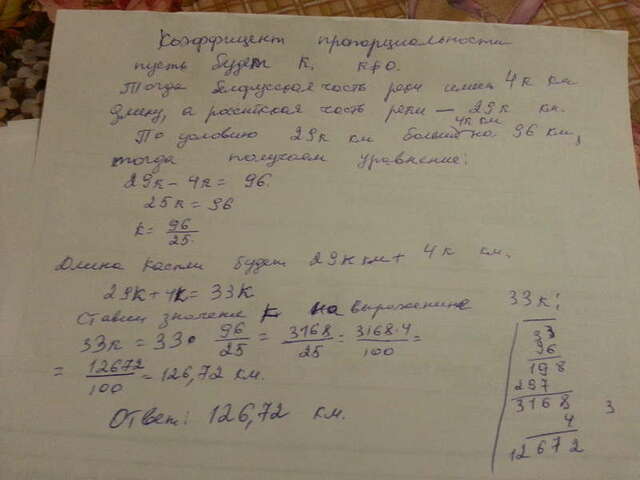 Коэффицент пропорциальности
пусть будет к, к≠0.
Тогда белорусская часть реки имеет 4к км
длину, а российская часть реки — 29к км.
4к км
По условию 29к км больше на 96 км,
тогда получаем уравнение:
29к - 4к = 96.
25к = 96
к = 96/25.
Длина каспли будет 29к км + 4к км.
29к + 4к = 33к
Ставим значение к на выражение 33к:
33к = 33 · 96/25 = 3168/25 = 3168·4/100 =
= 12672/100 = 126,72 км.
Ответ: 126,72 км.
33
96
198
297
3168
3
4
12672